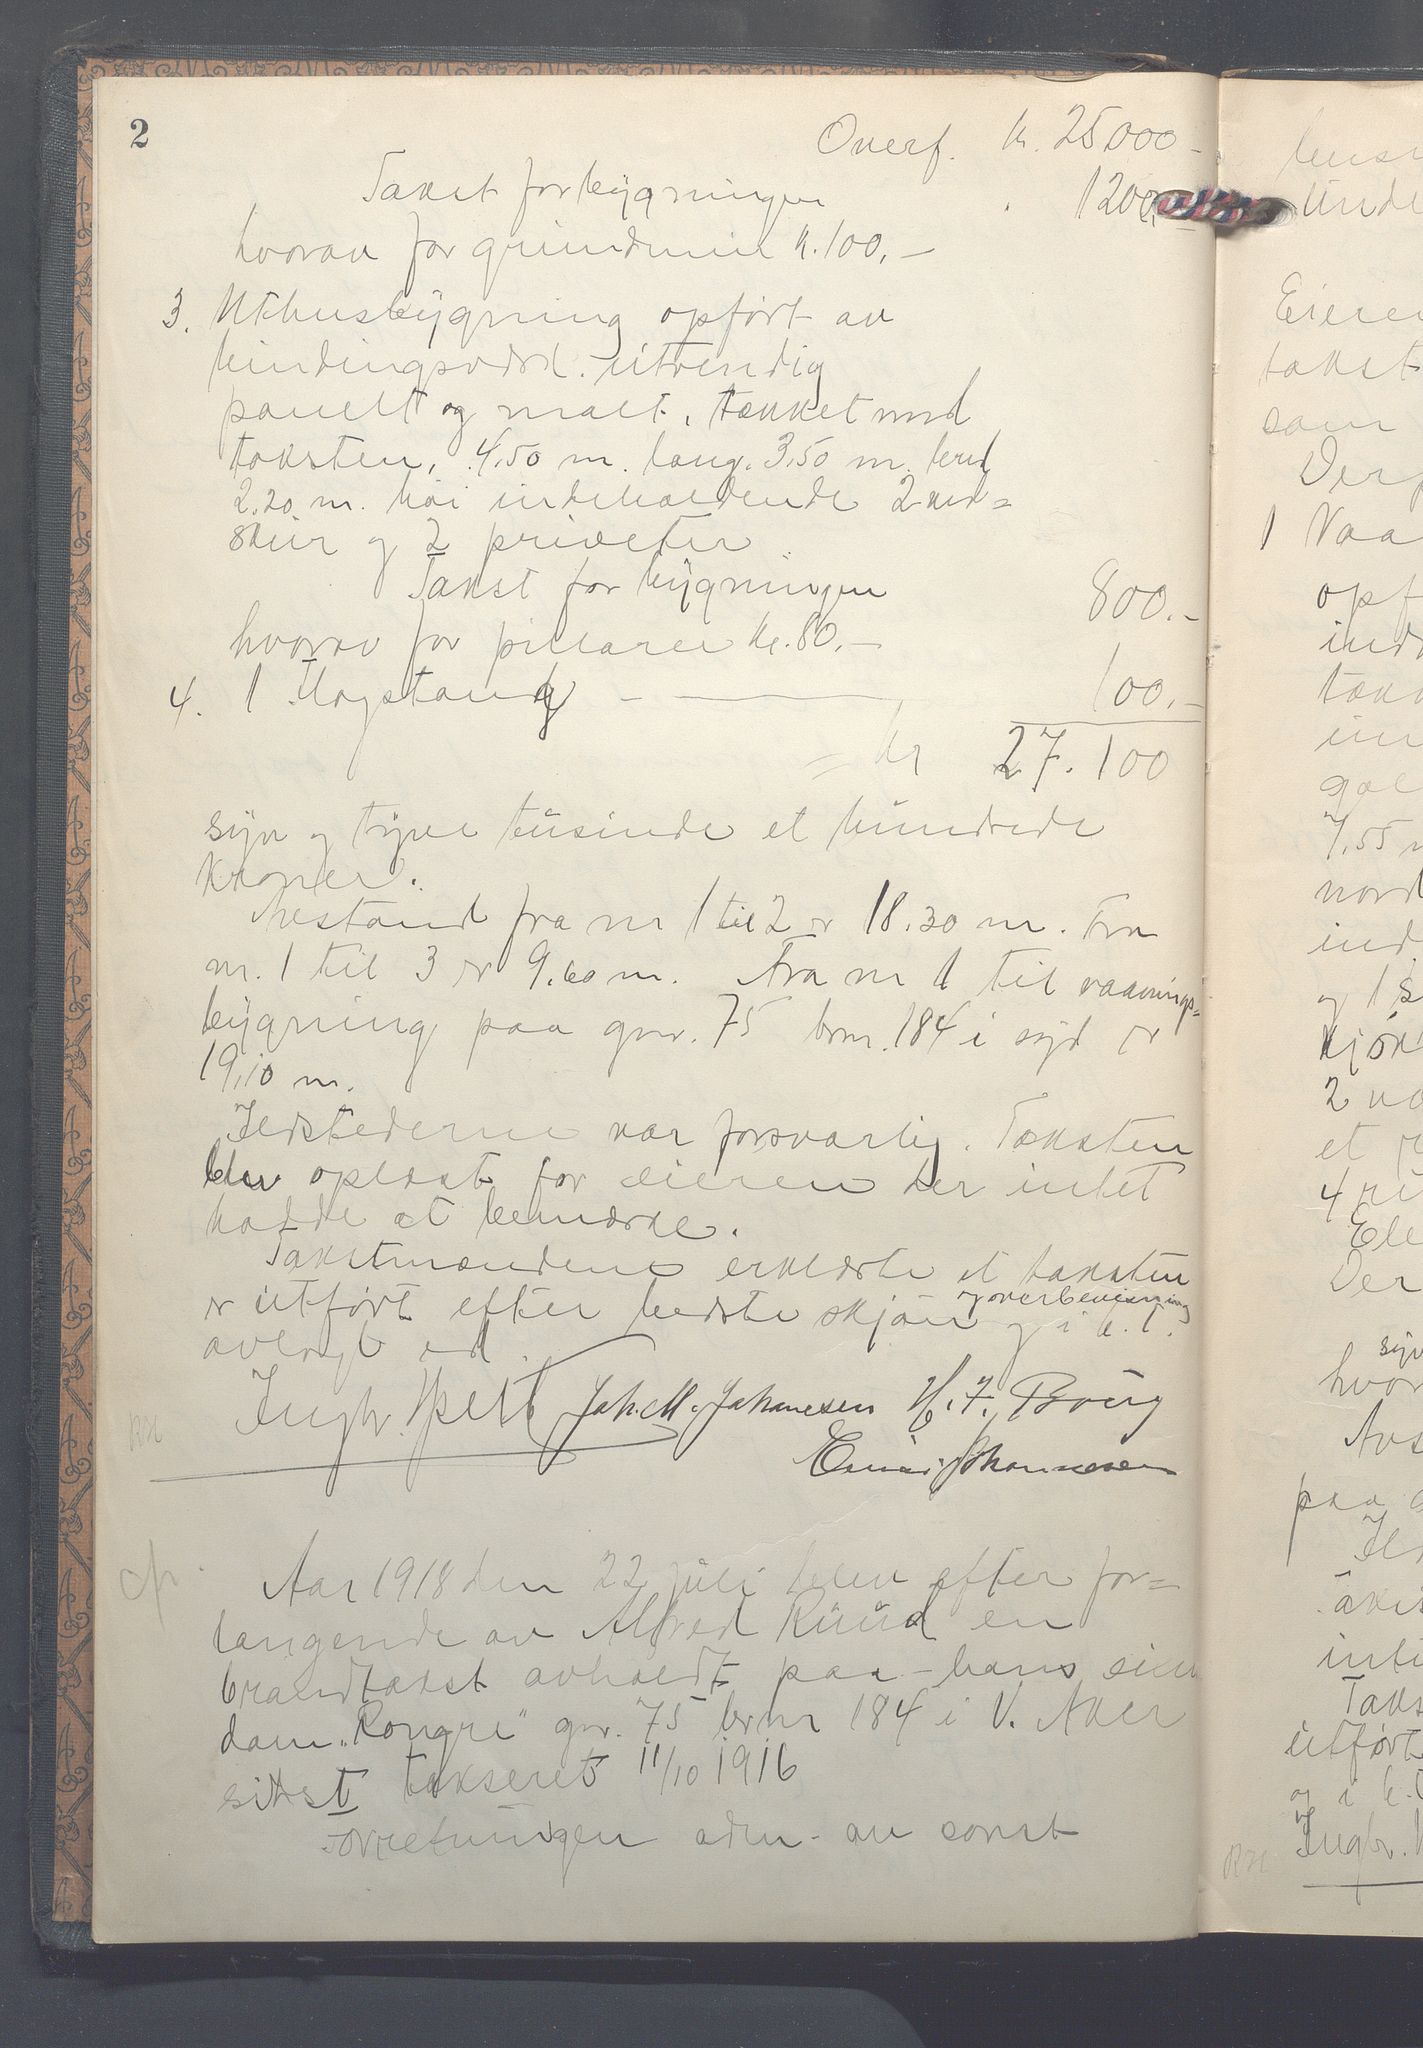 2
Overf. kr. 25000 -
Takst for bygningen " 1200,-
hvorav for grundmur k. 100,-
3. Uthusbygning opført av
bindingsværk utvendig
panelt og malt, tækket med
taksten, 4,50 m. lang, 3,50 m. bred
2,20 m. høi indeholdende 2 ved=
skur og 2 priveter
Takst for bygningen 800.-
hvorav for pillarer kr. 80.-
4. 1 Flagstang - 100,-
= kr 27.100
syv og tyve tusinde et hundrede
kroner.
Avstand fra nr 1 til 2 er 18.30 m. Fra
nr. 1 til 3 er 9,60 m. Fra nr 1 til vaanings=
bygning paa gnr. 75 brnr. 184 i syd er
19,10 m.
Ildstederne var forsvarlig. Taksten
blev oplæst for eieren der intet
hadde at bemærke.
Takstmændene erklærte at taksten
er utført efter bedste skjøn og overbevisning og i h.t.
avlagt ed.
Ingbr. Joh. M. Johannesen H. F. Borg
Einar Johannesen
Aar 1918 den 22 juli blev efter for=
langende av Alfred Ruud en
brandtakst avholdt paa hans eien
dom "Rongli" gnr. 75 brnr 184 i V. Aker
sidst takseret 11/10 1916
Forretningen adm. av const
1 Vaa
opf
ind
tækk
7,55 m
nord
ind
og 1 s
kjøk
2
et
Ele
Der
syv
hvor
Avs
paa
Ild
Taks
utført
og i h.t
Ingbr.
Eieren
takst
som